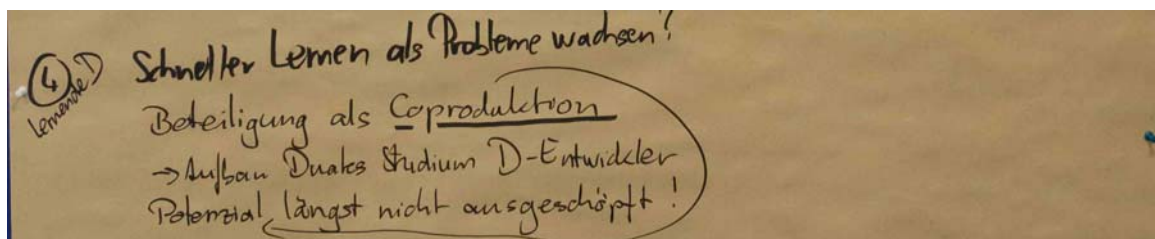 ④ Schneller Lernen als Probleme wachsen?
Lernende D
Beteiligung als Coproduktion
→ Aufbau Duales Studium D-Entwickler
Potenzial längst nicht ausgeschöpft!